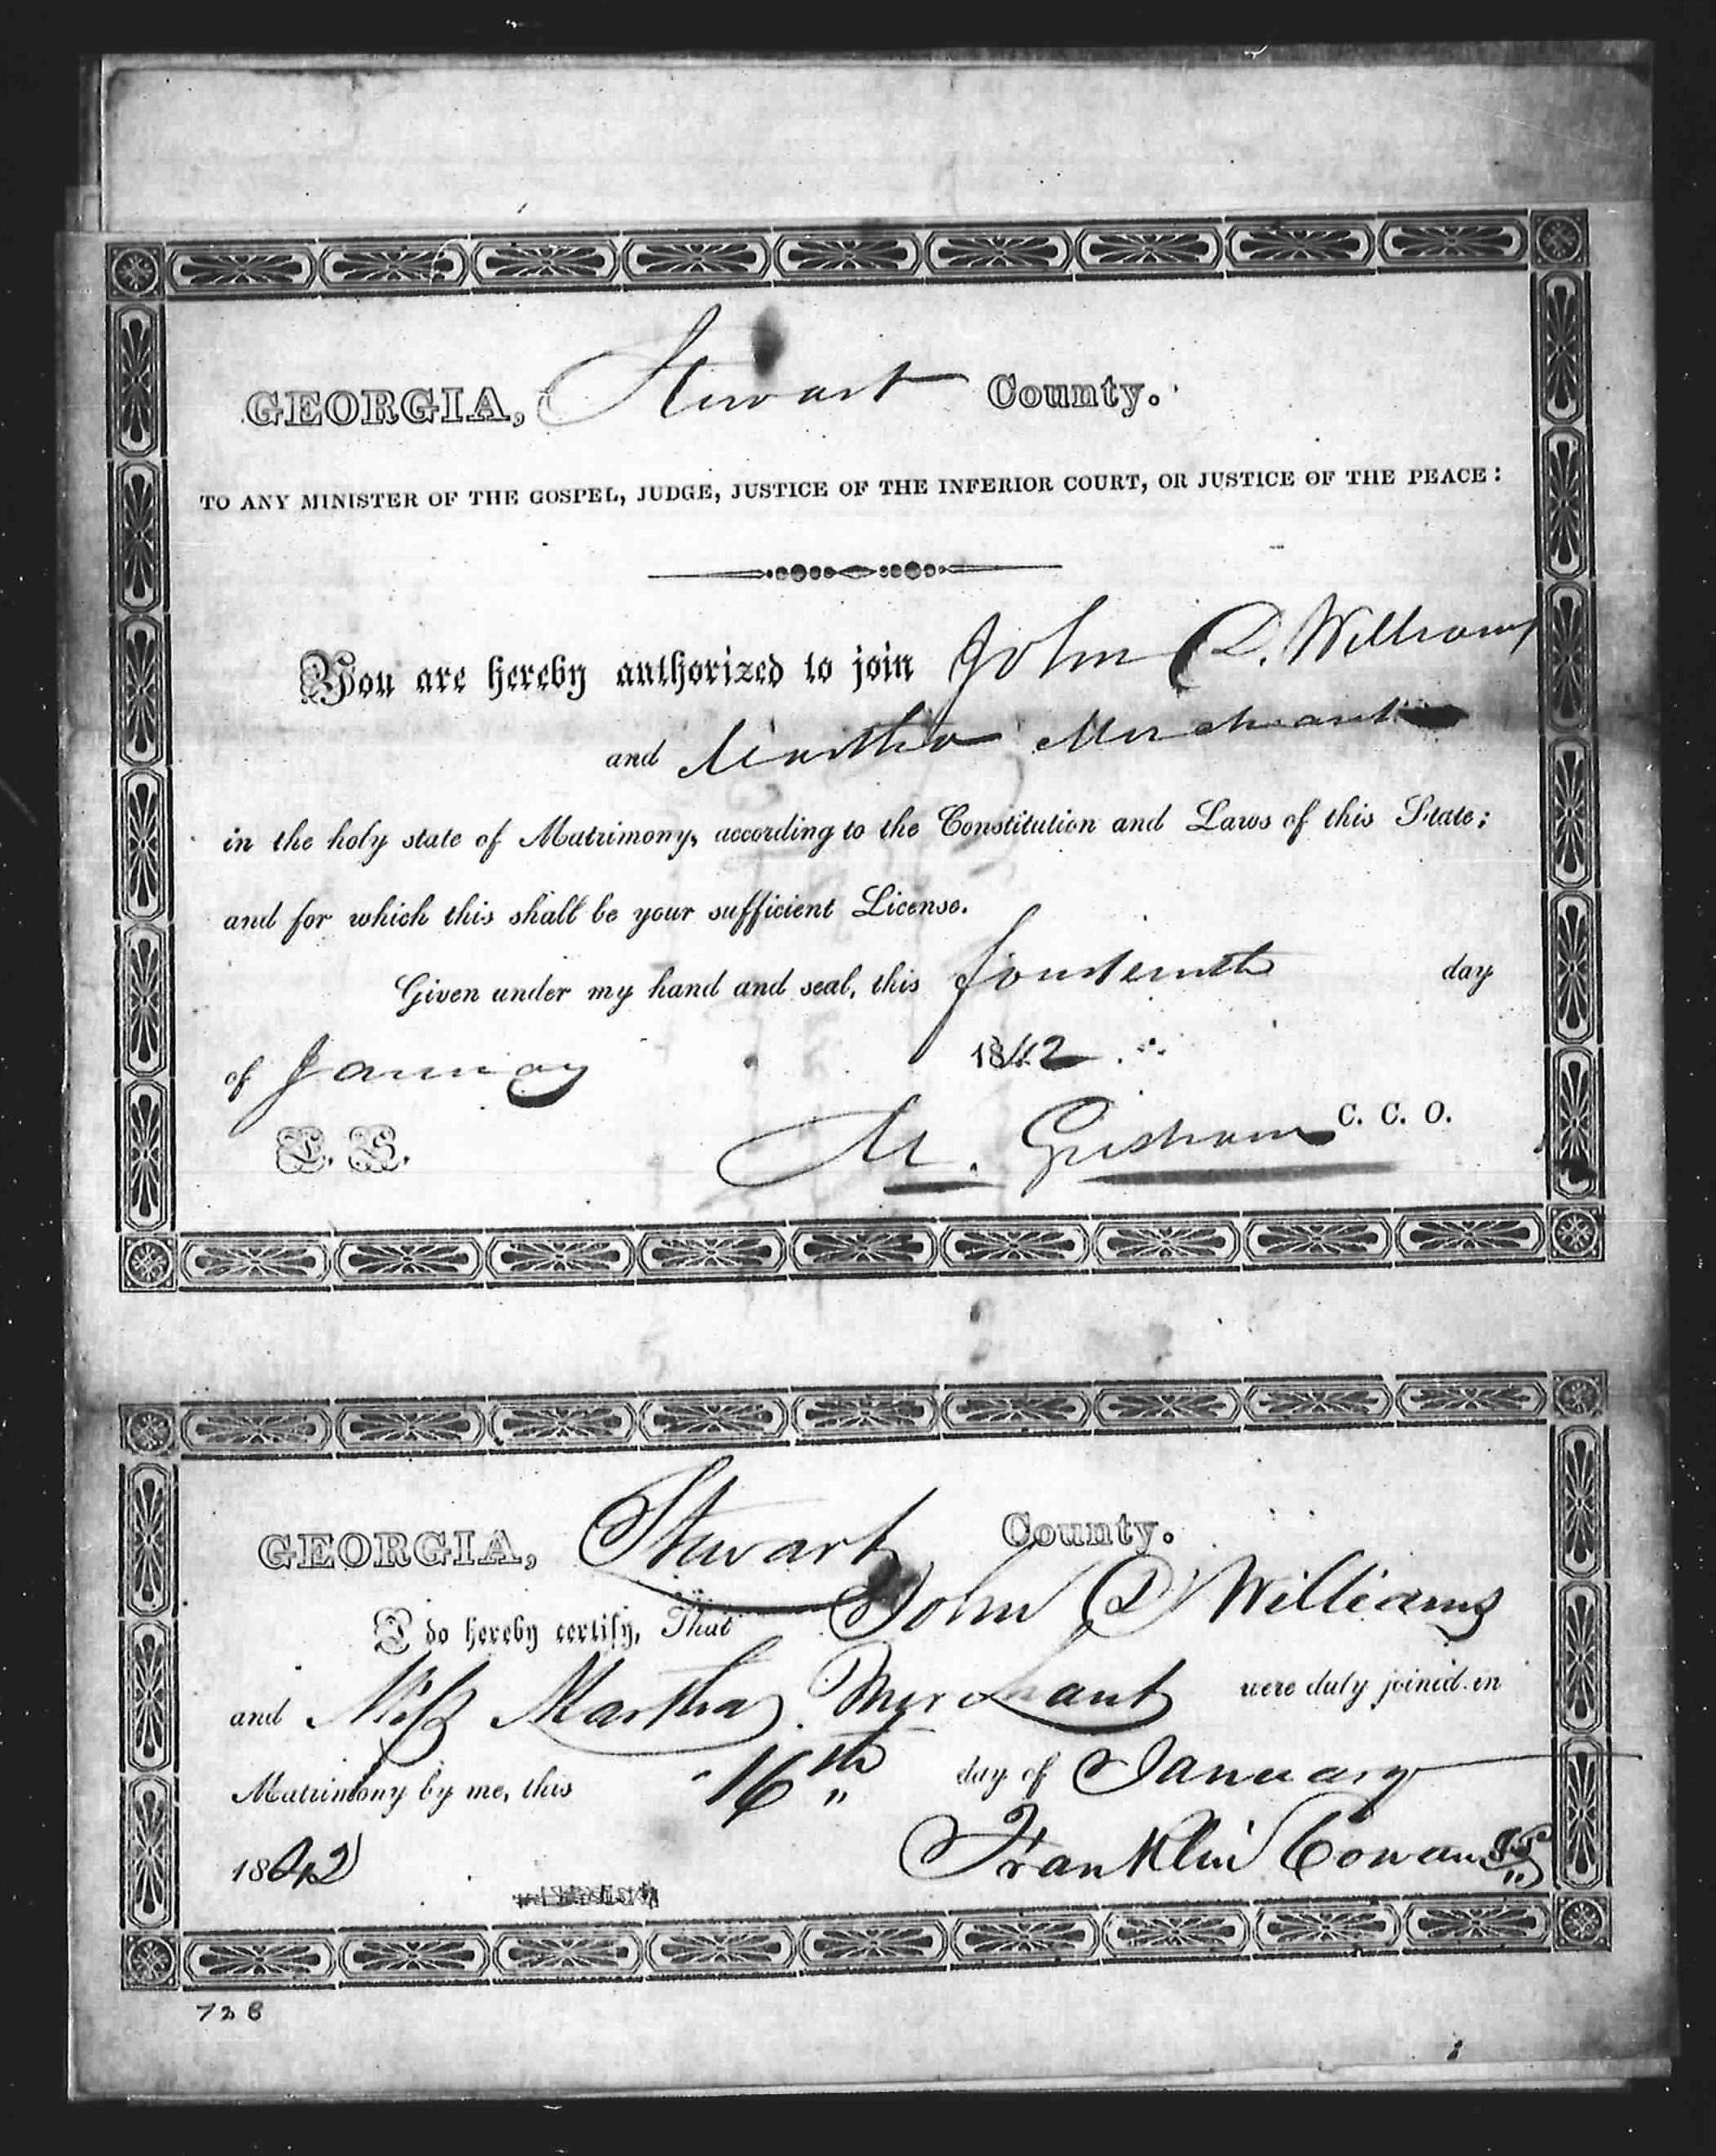 GEORGIA, Stewart County.
TO ANY MINISTER OF THE GOSPEL, JUDGE, JUSTICE OF THE INFERIOR COURT, OR JUSTICE OF THE PEACE:
You are hereby authorized to join John D. Williams
and Martha Merchant
in the holy state of Matrimony, according to the Constitution and Laws of this State;
and for which this shall be your sufficient License.
Given under my hand and seal, this fourteenth day
of January 1842
L. S. M. Gresham C. C. O.
GEORGIA, Stewart County.
I do hereby certify, That John D Williams
and Miss Martha Merchant were duly joined in
Matrimony by me, this 16th day of January
1842 Franklin Cowan JP
728